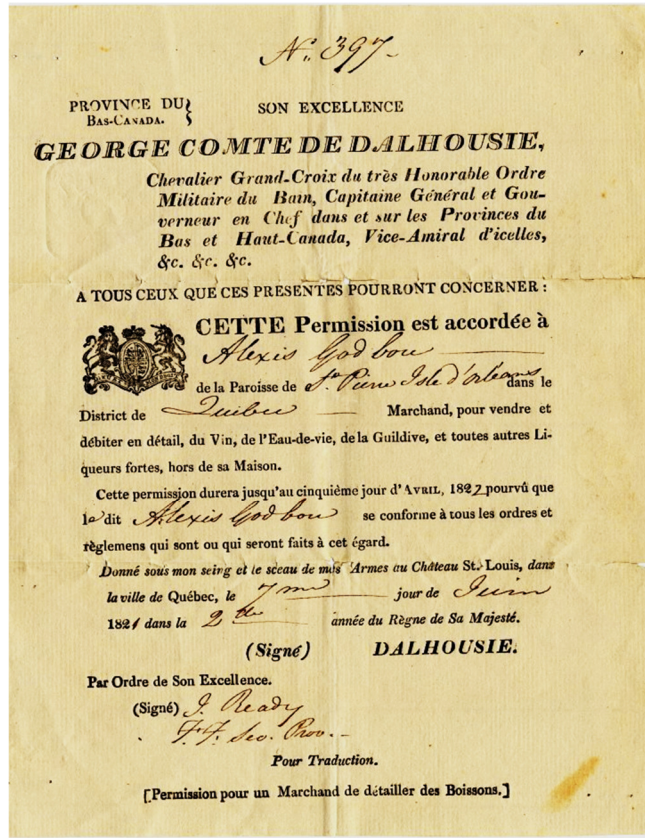 N.. 397
PROVINCE DU
BAS-CANADA.
SON EXCELLENCE
GEORGE COMTE DE DALHOUSIE,
Chevalier Grand-Croix du très Honorable Ordre
Militaire du Bain, Capitaine Général et Gou-
verneur en Chef dans et sur les Provinces du
Bas et Haut-Canada, Vice-Amiral d'icelles,
&c. &c. &c.
A TOUS CEUX QUE CES PRESENTES POURRONT CONCERNER :
CETTE Permission est accordée à
Alexis Godbou
de la Paroisse de St. Pierre Isle d'Orléans dans le
District de Quibec Marchand, pour vendre et
débiter en détail, du Vin, de l'Eau-de-vie, de la Guildive, et toutes autres Li-
queurs fortes, hors de sa Maison.
Cette permission durera jusqu'au cinquième jour d'AVRIL, 1822 pourvû que
le dit Alexis Godbou se conforme à tous les ordres et
règlemens qui sont ou qui seront faits à cet égard.
Donné sous mon seing et le sceau de mes Armes au Château St. Louis, dans
la ville de Québec, le 7me jour de Juin
1821 dans la 2de année du Règne de Sa Majesté.
(Signé) DALHOUSIE.
Par Ordre de Son Excellence.
(Signé) J. Ready
F.F. Sec. Prov.
Pour Traduction.
[Permission pour un Marchand de détailler des Boissons.]